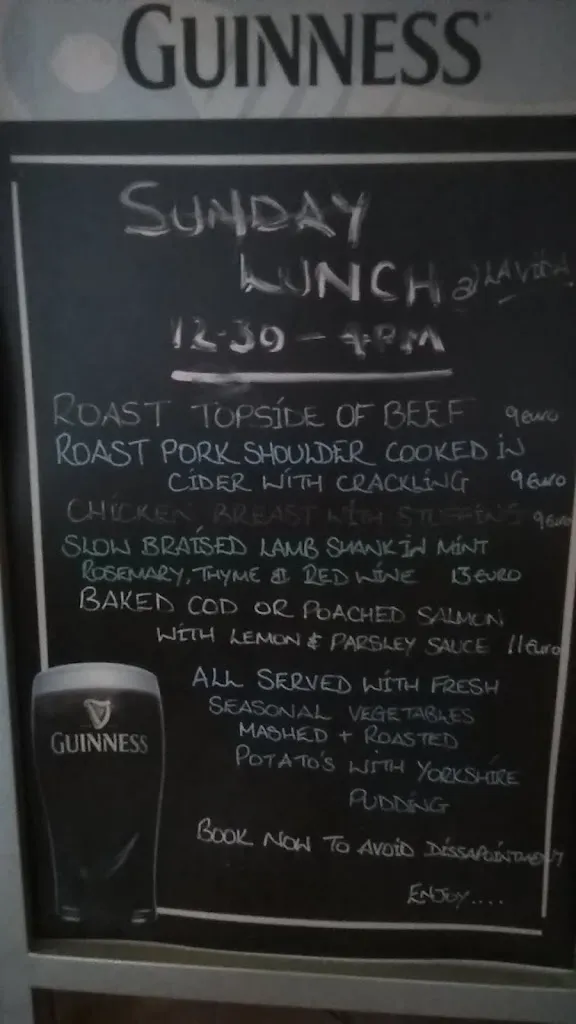 GUINNESS
SUNDAY
LUNCH @ LA VIDA
12-30 - 4PM
ROAST TOPSIDE OF BEEF 9euro
ROAST PORK SHOULDER COOKED IN
CIDER WITH CRACKLING 9Euro
CHICKEN BREAST WITH STUFFING 9euro
SLOW BRAISED LAMB SHANK IN MINT
ROSEMARY, THYME & RED WINE 13EURO
BAKED COD OR POACHED SALMON
WITH LEMON & PARSLEY SAUCE 11Euro
ALL SERVED WITH FRESH
SEASONAL VEGETABLES
MASHED + ROASTED
POTATO'S WITH YORKSHIRE
PUDDING
BOOK NOW TO AVOID DISSAPOINTMENT
ENJOY....
GUINNESS